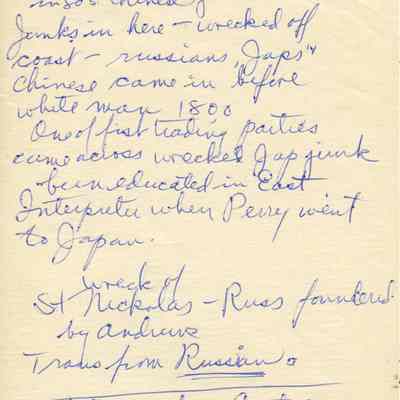 in 80's Chinese
Janks in here - wrecked off
coast - russians, Japs "
Chinese came in before
white man 1800
One of fist trading parties
came across wrecked Jap junk
- been educated in East
Interpreter when Perry went
to Japan.
wreck of
St Nickolas - Russ foundered
by Andrews
Trans from Russian